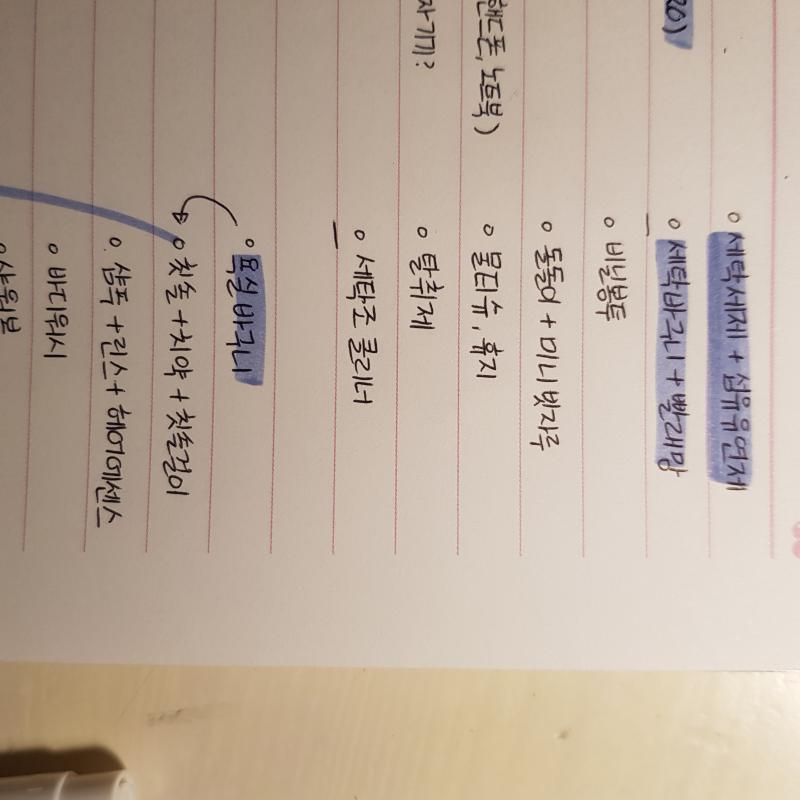 20)
핸드폰, 노트북)
자기기?
세탁세제 + 섬유유연제
세탁바구니 + 빨래망
비닐봉투
돌돌이 + 미니빗자루
물티슈, 휴지
탈취제
세탁조 클리너
욕실바구니
칫솔 + 치약 + 칫솔걸이
샴푸 + 린스 + 헤어에센스
바디워시
샤워볼